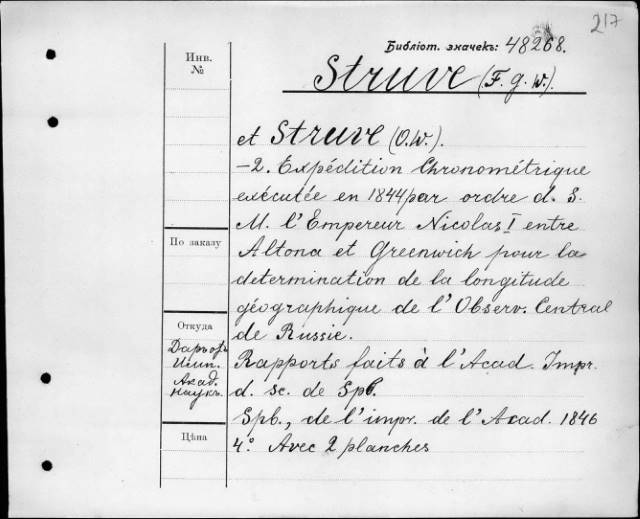 217
Библіот. значекъ: 48268.
Инв.
№
Struve (F. G. W.).
et Struve (O. W.).
—2. Expédition Chronométrique
exécutée en 1844 par ordre d. S.
M. l'Empereur Nicolas I entre
По заказу
Altona et Greenwich pour la
determination de la longitude
géographique de l'Observ. Central
de Russie.
Откуда
Даръ отъ
Имп.
Акад.
Наукъ
Rapports faits à l'Acad. Impr.
d. sc. de Spb.
Spb., de l'impr. de l'Acad. 1846
Цѣна
4° Avec 2 planches